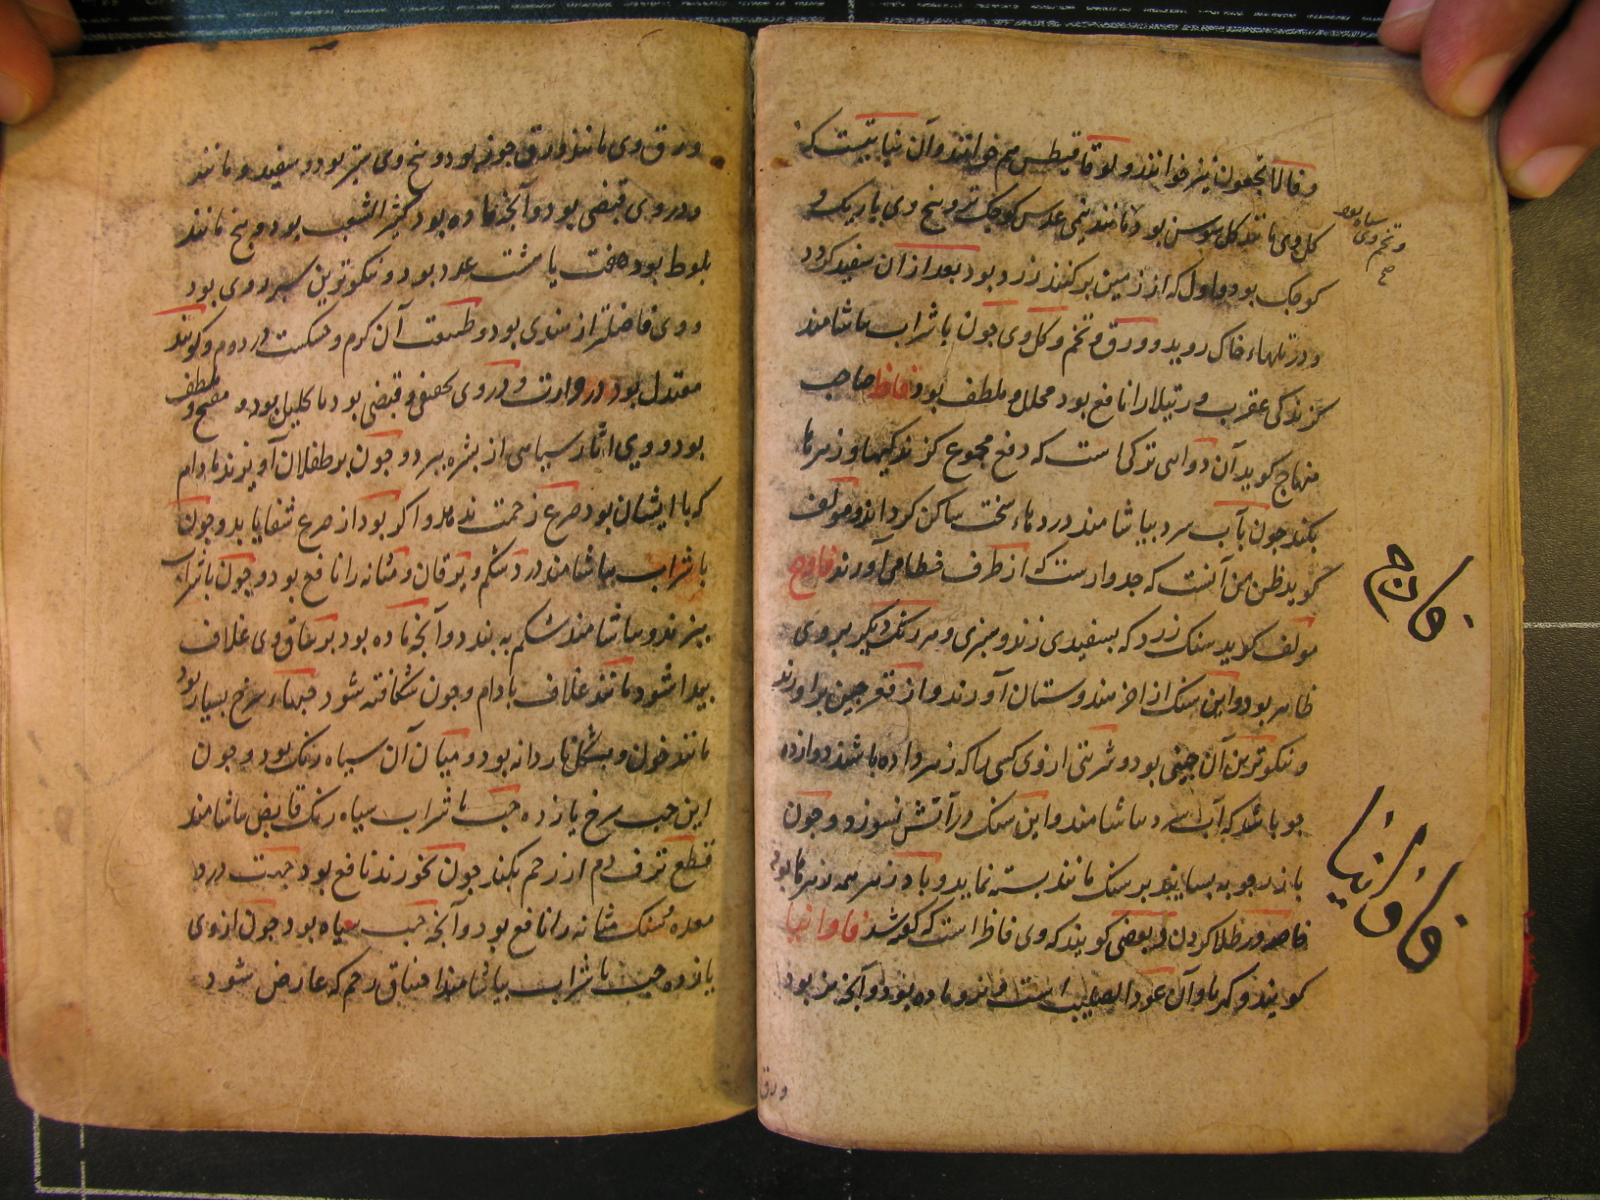 و فالانجعون نیز خوانند و لوقاقیطس هم خوانند و آن نباتیست که
کل وی مانند کل سوسن بود مانند نیمی عدس کوچک‌تر و بیخ وی باریک و
و تخم وی سیاه بود
کوچک بود و اول که از زمین بر کنند زرد بود بعد از آن سفید کردد
و در تلهاء خاک روید و ورق و تخم و کل وی چون با شراب بیاشامند
کزندکی عقرب و رتیلا را نافع بود محلل و ملطف بود فاظ صاحب
منهاج کوید آن دوای ترکی است که دفع مجموع کزندکیها و زهرها
بکند چون بآب سرد بیاشامند دردهاء سخت ساکن کرداند و مولف
کوید ظن من آنست که جدوارست که از طرف خطا می‌آورند فاوج
فاوج
مولف کوید سنک زرد که بسفیدی زند و سبزی و هر رنک دیکر بر وی
ظاهر بود و این سنک از اخر هندوستان آورند و از قعر چین براورند
و نیکوترین آن چینی بود و شربتی از وی کسی را که زهر داده باشند دوازده
جو باشد که بآب سرد بیاشامند و این سنک در آتش نسوزد و چون
با زردچوبه بسایند بر سنک مانند بسته نماید و پادزهر همه زهرها بود
فاوانیا
خاصه در طلا کردن و بعضی کویند که وی فاظ است که کفته شد فاوانیا
کویند و کهیا و آن عود الصلیب است و نر و ماده بود و آنچه نر بود
ورق
ورق وی مانند ورق جوز بود و بیخ وی ستبر بود و سفید و مانند
و در وی قبضی بود و آنچه ماده بود کثیر الشعب بود و بیخ مانند
بلوط بود هفت یا هشت عدد بود و نیکوترین سر روی بود
و وی فاضلتر از هندی بود و طبیعت آن کرم و خشکست در دوم و کویند
معتدل بود در حرارت و در وی تجفیفی و قبضی بود با تحلیل بود و مفتح و ملطف
بود و وی اثار سیاهی از بشره ببرد و چون بر طفلان آویزند مادام
که با ایشان بود صرع زحمت ندهد و اکر بود از صرع شفا یابد و چون
با شراب بیاشامند درد شکم و یرقان و مثانه را نافع بود و چون با شراب
بپزند و بیاشامند شکم به بندد و آنچه ماده بود بر ساق وی غلاف
پیدا شود مانند غلاف بادام و چون شکافته شود حبهاء سرخ بسیار بود
مانند خون و بشکل ناردانه بود و میان آن سیاه رنک بود و چون
این حب سرخ یازده حب با شراب سیاه رنک قابض بیاشامند
قطع نزف دم از رحم بکند چون بخورند نافع بود جهت درد
معده و سنک مثانه را نافع بود و آنچه حب سیاه بود چون از وی
یازده حب با شراب بیاشامند اختناق رحم که عارض شود